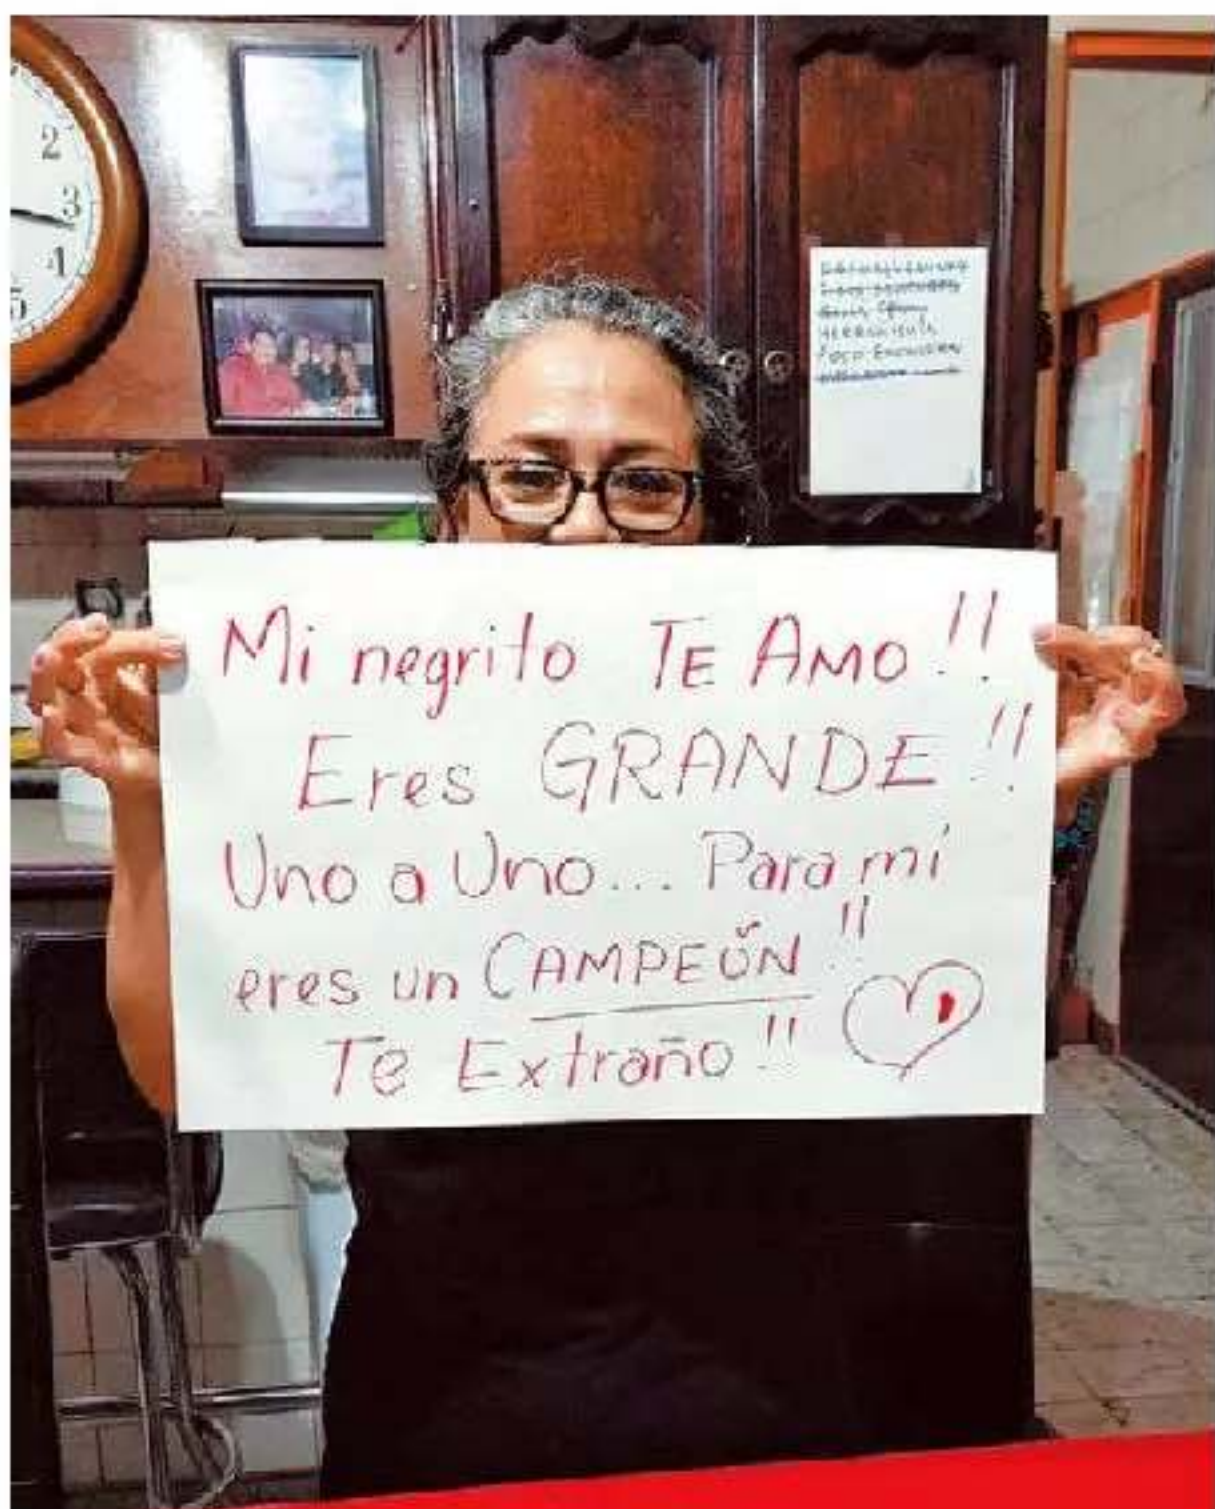 2
3
4
5
Mi negrito TE AMO!!
Eres GRANDE!!
Uno a Uno... Para mí
eres un CAMPEÓN!!
Te Extraño!!